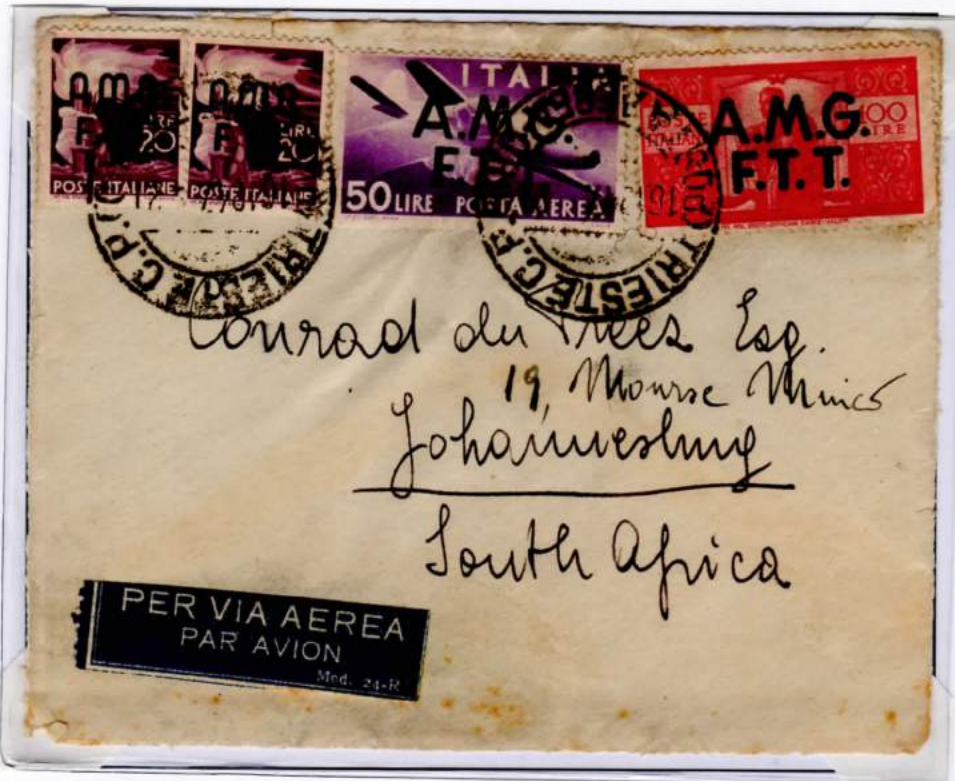 A.M.G.
F.T.T.
LIRE
20
POSTE ITALIANE
A.M.G.
F.T.T.
LIRE
20
POSTE ITALIANE
ITALIA
A.M.G.
F.T.T.
50 LIRE POSTA AEREA
POSTE
ITALIANE
100
LIRE
A.M.G.
F.T.T.
TRIESTE C.P.
TRIESTE C.P.
Conrad du Esq.
19, Mourse
Johannesburg
South Africa
PER VIA AEREA
PAR AVION
Mod. 24-R